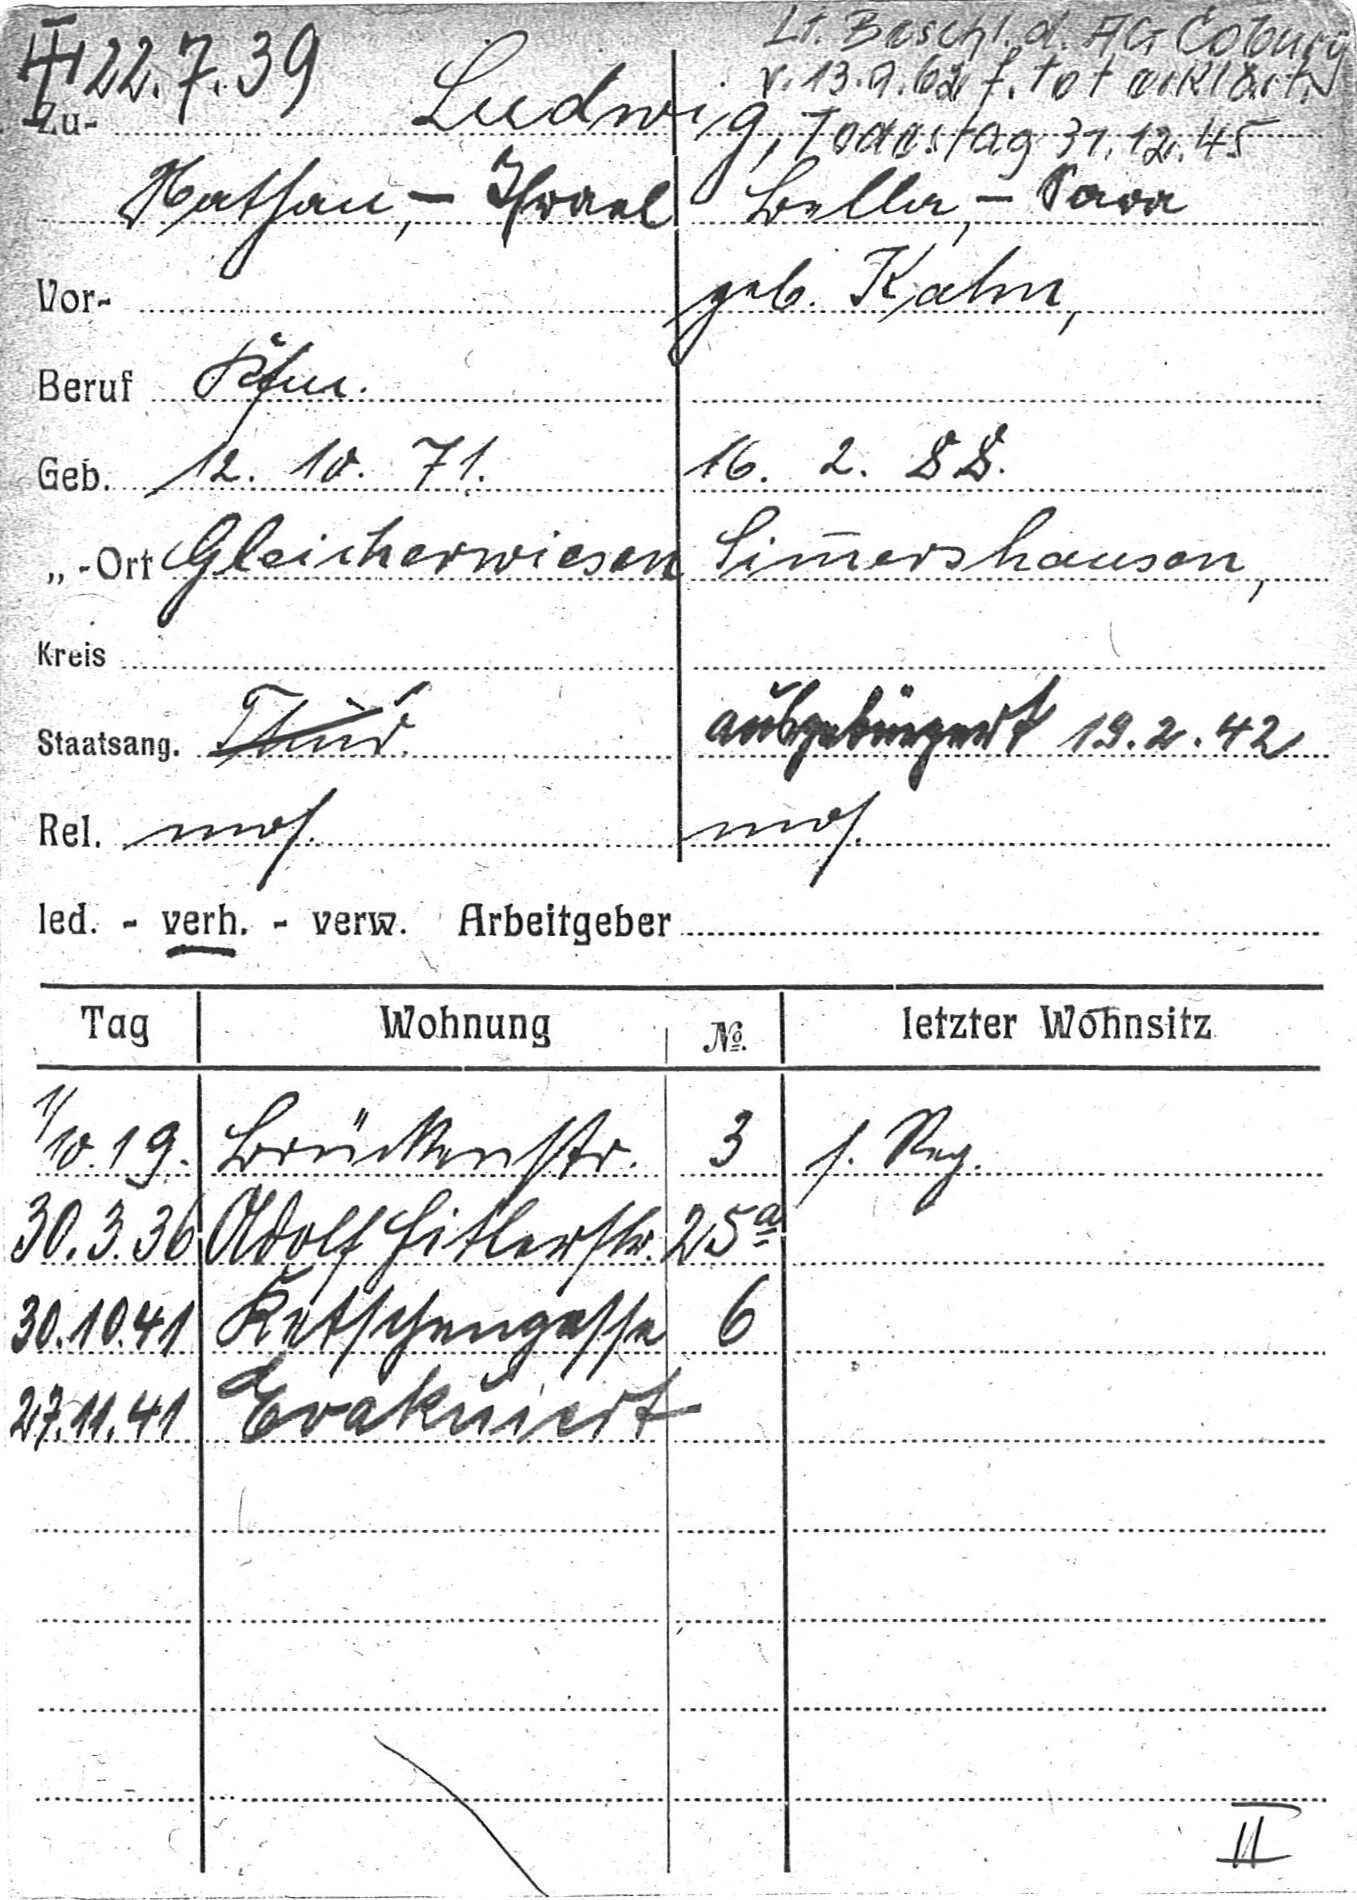 22.7.39
Lt. Beschl. d. AG Coburg
v. 13.9.62 f. tot erklärt.
Todestag 31.12.45
Zu- Ludwig,
Nathan, - Israel Bella, - Sara
Vor- geb. Kahn,
Beruf Kfm.
Geb. 12. 10. 71. 16. 2. 88.
„ -Ort Gleicherwiesen Sim̄ershausen,
Kreis
Staatsang. Thür. ausgebürgert 19.2.42
Rel. mos. mos.
led. - verh. - verw. Arbeitgeber
Tag Wohnung No. letzter Wohnsitz
1/10.19. Brückenstr. 3 s. Reg.
30.3.36 Adolf Hitlerstr. 25a
30.10.41 Ketschengasse 6
27.11.41 Evakuiert
II